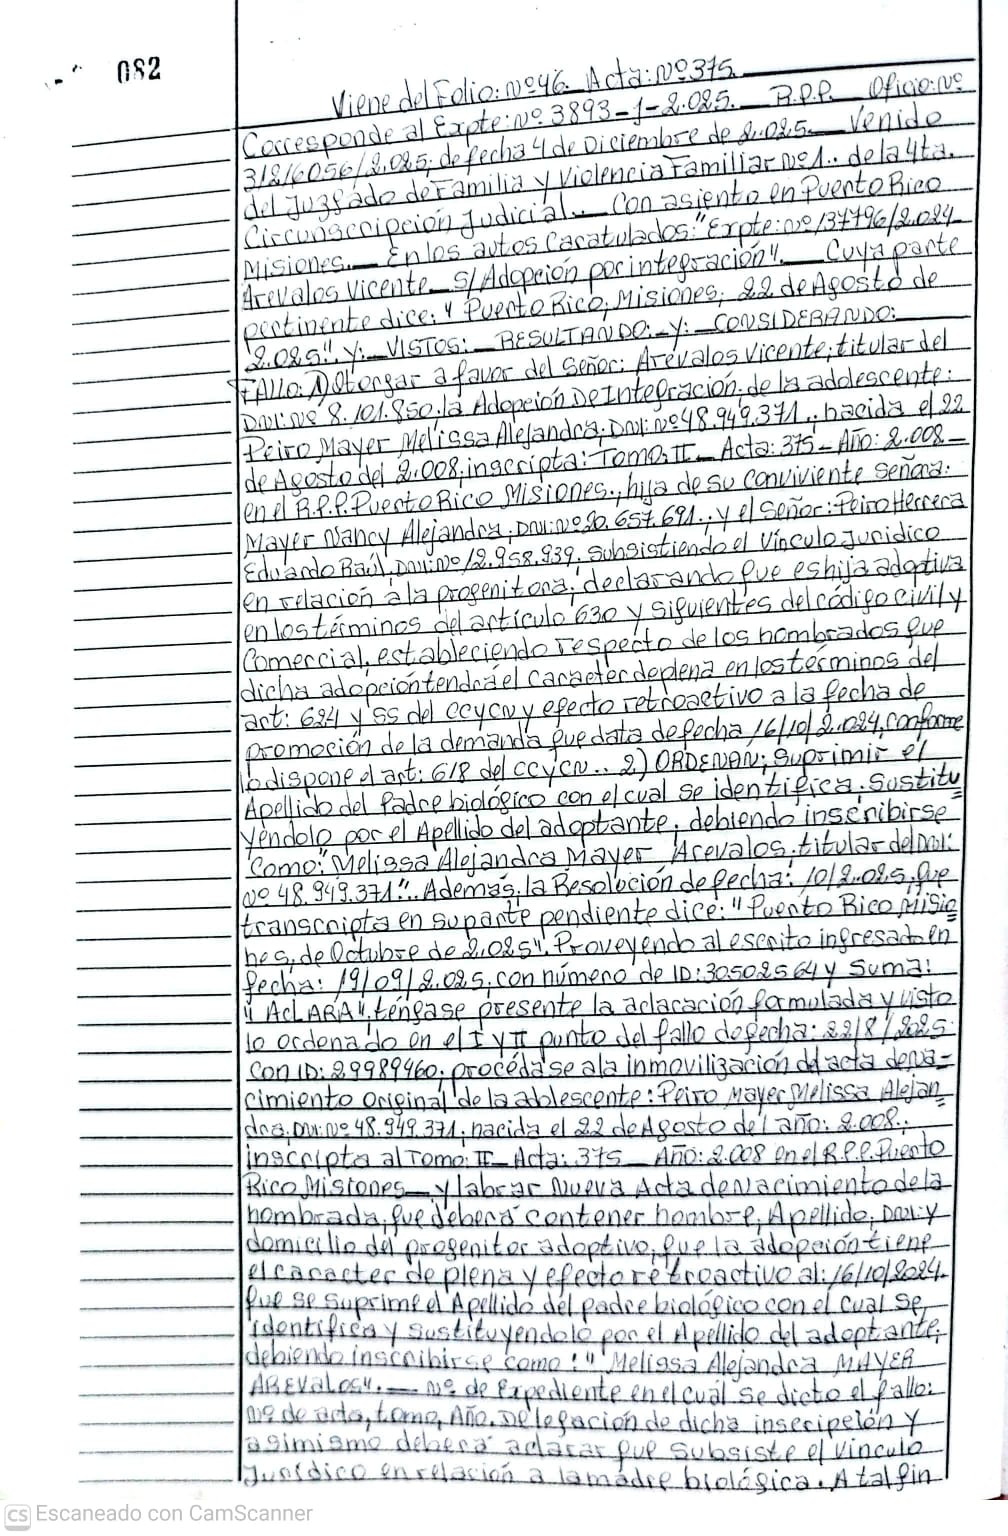 082
Viene del Folio: Nº46. Acta: Nº375.
Corresponde al Expte: Nº 3893-1-2.025. R.P.P. Oficio: Nº
312/6056/2.025; de fecha 4 de Diciembre de 2.025. Venido
del Juzgado de Familia y Violencia Familiar Nº1.. de la 4ta.
Circunscripción Judicial. Con asiento en Puerto Rico
Misiones. En los autos Caratulados: "Expte: Nº 137796/2.024
Arevalos Vicente S/Adopción por integración". Cuya parte
pertinente dice: "Puerto Rico, Misiones, 22 de Agosto de
2.025". Y: VISTOS: RESULTANDO: Y: CONSIDERANDO:
FALLO: 1) Otorgar a favor del señor: Arevalos Vicente; titular del
DNI: Nº 8.101.850. la Adopción De Integración, de la adolescente:
Peiro Mayer Melissa Alejandra, DNI: Nº 48.949.371., nacida el 22
de Agosto del 2.008, inscripta: Tomo: II Acta: 375- Año: 2.008-
en el R.P.P. Puerto Rico Misiones., hija de su conviviente señora:
Mayer Nancy Alejandra, DNI: Nº 20.657.691., y el señor: Peiro Herrera
Eduardo Raúl, DNI: Nº 12.958.939. Subsistiendo el Vínculo Juridico
en relación a la progenitora, declarando que es hija adoptiva
en los términos del artículo 630 y siguientes del código civil y
Comercial, estableciendo respecto de los nombrados que
dicha adopción tendrá el caracter de plena en los términos del
art: 624 y SS del CCYCN y efecto retroactivo a la fecha de
promoción de la demanda que data de fecha 16/10/2.024, conforme
lo dispone el art: 618 del CCYCN.. 2) ORDENAN; Suprimir el
Apellido del Padre biológico con el cual se identifica. Sustitu
yéndolo por el Apellido del adoptante, debiendo inscribirse
como: "Melissa Alejandra Mayer Arevalos, titular del DNI:
Nº 48.949.371".. Además, la Resolución de fecha: 10/2.025, que
transcripta en su parte pendiente dice: "Puerto Rico Misio
nes, de Octubre de 2.025". Proveyendo al escrito ingresado en
fecha: 19/09/2.025, con número de ID: 30502564 y Suma:
"ACLARA", téngase presente la aclaración formulada y visto
lo ordenado en el I y II punto del fallo de fecha: 22/8/2025
con ID: 29989460, procédase a la inmovilización del acta de na-
cimiento original de la adolescente: Peiro Mayer Melissa Alejan
dra, DNI: Nº 48.949.371, nacida el 22 de Agosto del año: 2.008.,
inscripta al Tomo: II- Acta: 375- Año: 2.008 en el R.P.P. Puerto
Rico Misiones y labrar Nueva Acta de Nacimiento de la
nombrada, que deberá contener nombre, Apellido, DNI y
domicilio del progenitor adoptivo, que la adopción tiene
el caracter de plena y efecto retroactivo al: 16/10/2024.
que se suprime el Apellido del padre biológico con el cual se
identifica y sustituyendolo por el Apellido del adoptante,
debiendo inscribirse como: "Melissa Alejandra MAYER
AREVALOS". Nº de Expediente en el cual se dicto el fallo:
Nº de acta, tomo, Año, Delegación de dicha inscripción y
asimismo deberá aclarar que subsiste el vinculo
Jurídico en relación a la madre biológica. A tal fin
CS Escaneado con CamScanner